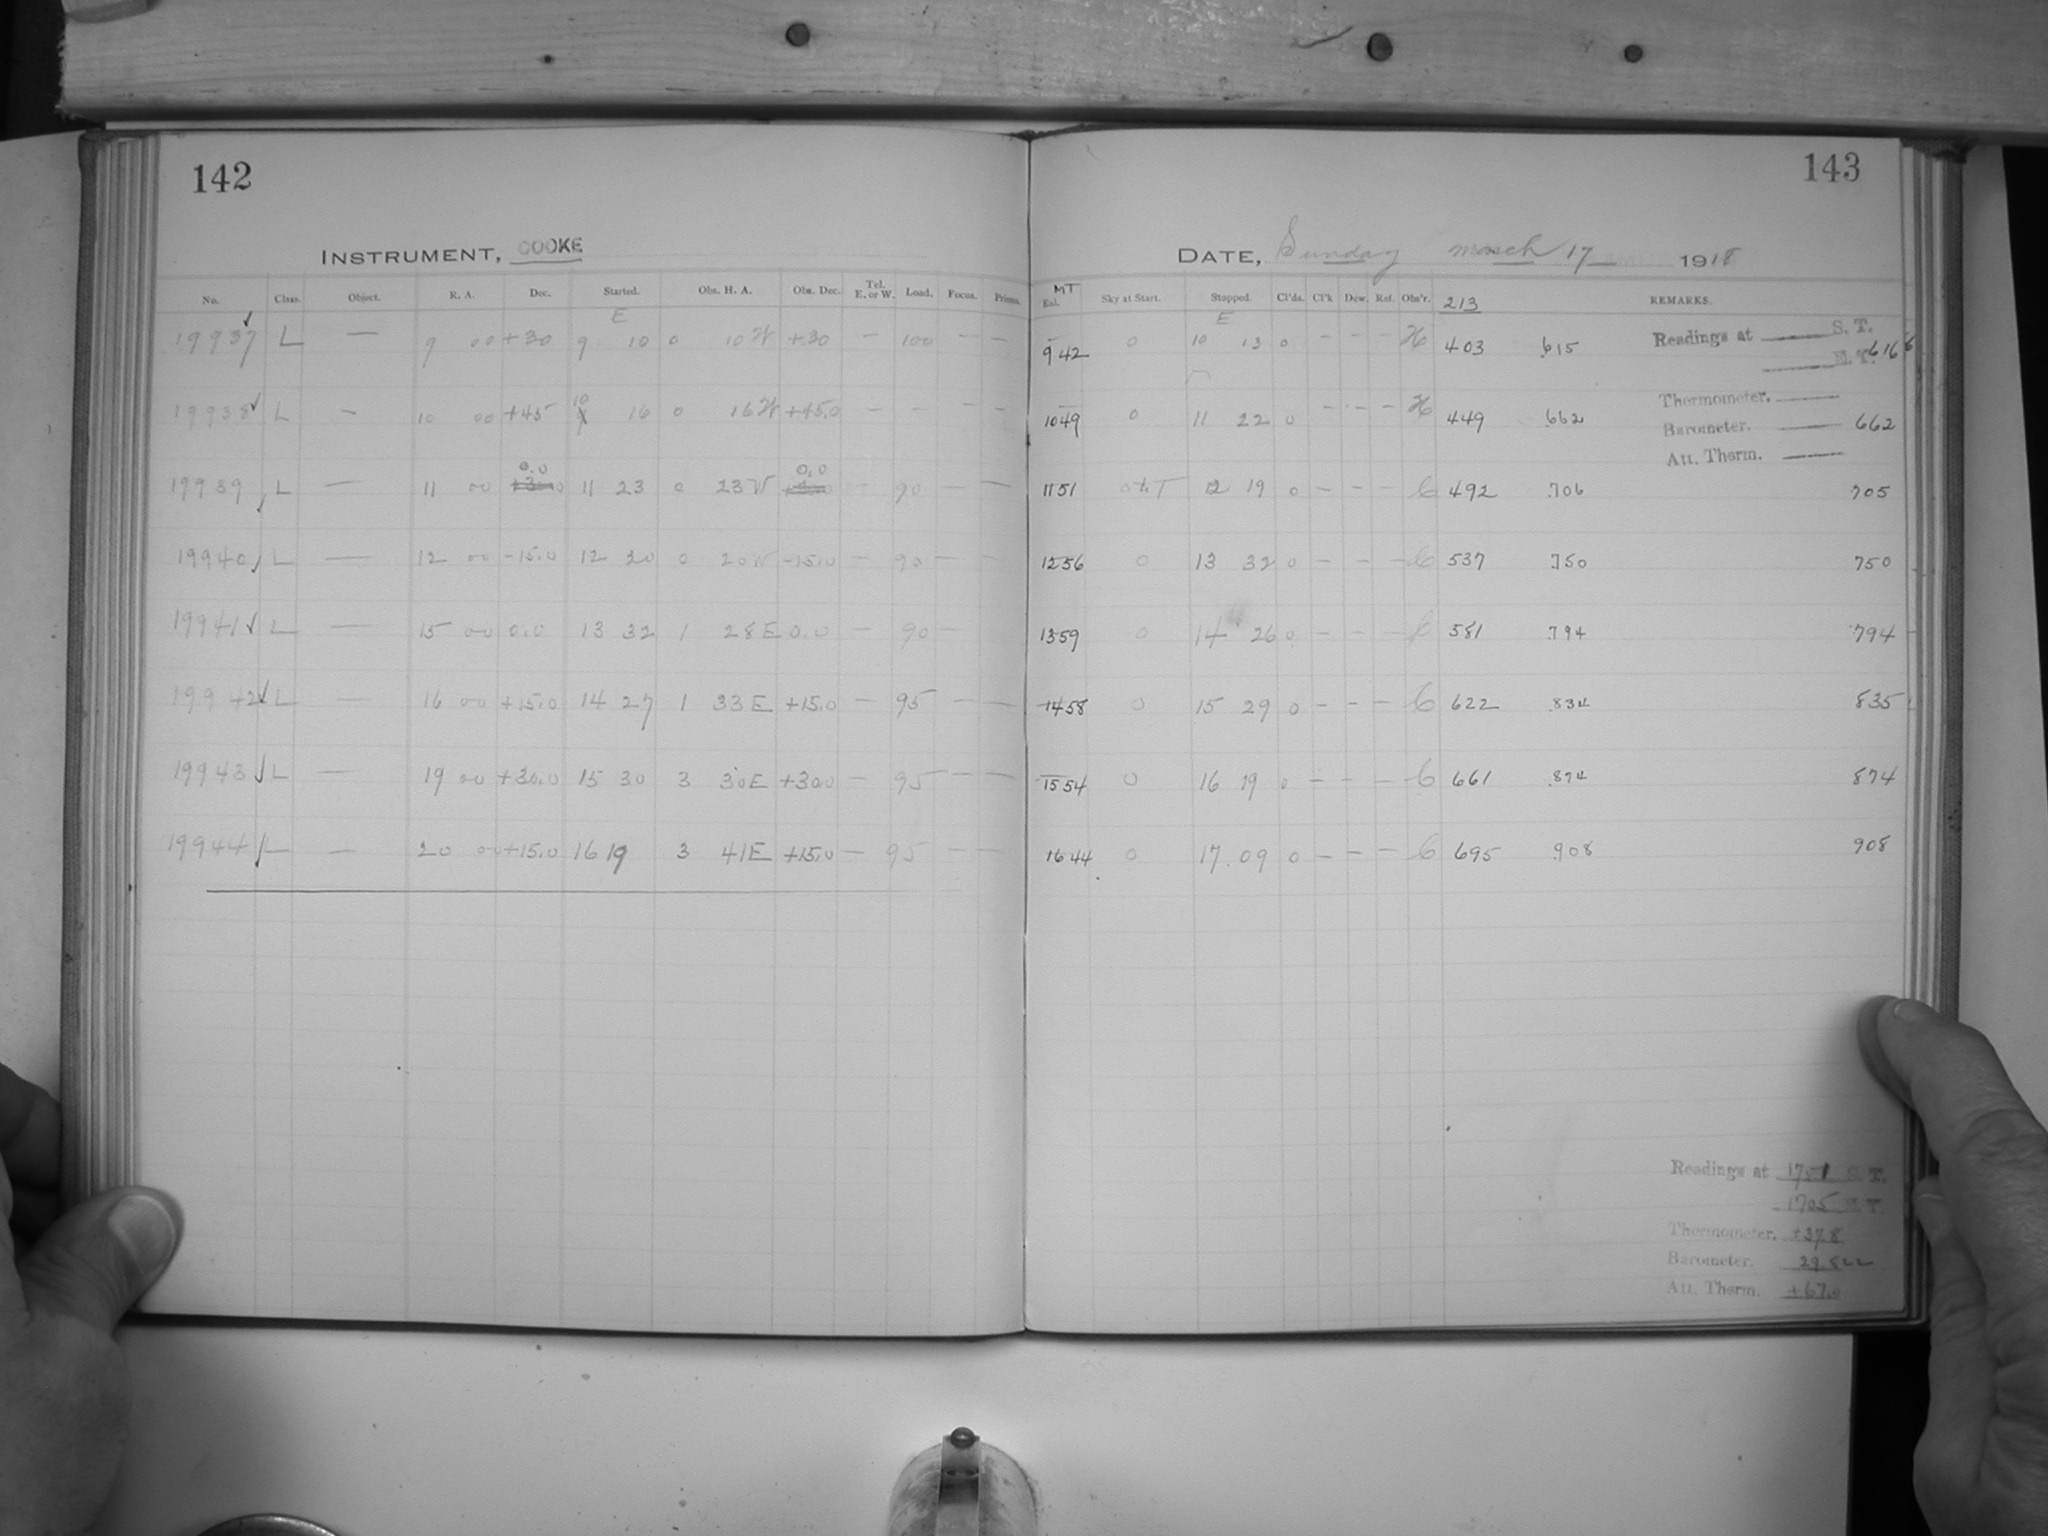 142
143
INSTRUMENT, COOKE
DATE, Sunday march 17 1918
No. Class. Object. R. A. Dec. Started. Obs. H. A. Obs. Dec. Tel. E. or W. Load. Focus. Prisms.
MT Sky at Start. Stopped. Cl'ds. Cl'k Dew. Ref. Obs'r. 213 REMARKS.
E
E
19937 ✓ L — 9 00 +30 9 10 0 10 W +30 — 100 — —
9 42 0 10 13 0 - - - H 403 .615 Readings at S. T. 616
19938 ✓ L — 10 00 +45 10 16 0 16 W +45.0 — — — —
10 49 0 11 22 0 - - - H 449 .662 Thermometer.
Barometer. 662
Att. Therm.
0.0 0.0
19939 ✓ L — 11 00 11 23 0 23 W — 90 — —
11 51 12 19 0 - - - 6 492 .706 705
19940 ✓ L — 12 00 -15.0 12 20 0 20 W -15.0 — 90 — —
12 56 0 13 32 0 - - - 6 537 .750 750
19941 ✓ L — 15 00 0.0 13 32 1 28 E 0.0 — 90 —
13 59 0 14 26 0 - - - 6 581 .794 794
19942 ✓ L — 16 00 +15.0 14 27 1 33 E +15.0 — 95 — —
14 58 0 15 29 0 - - - 6 622 .834 835
19943 ✓ L — 19 00 +30.0 15 30 3 30 E +30.0 — 95 — —
15 54 0 16 19 0 - - - 6 661 .874 874
19944 ✓ L — 20 00 +15.0 16 19 3 41 E +15.0 — 95 — —
16 44 0 17 09 0 - - - 6 695 .908 908
Readings at S. T.
1705
Thermometer. +37.8
Barometer. 29.822
Att. Therm. +67.0